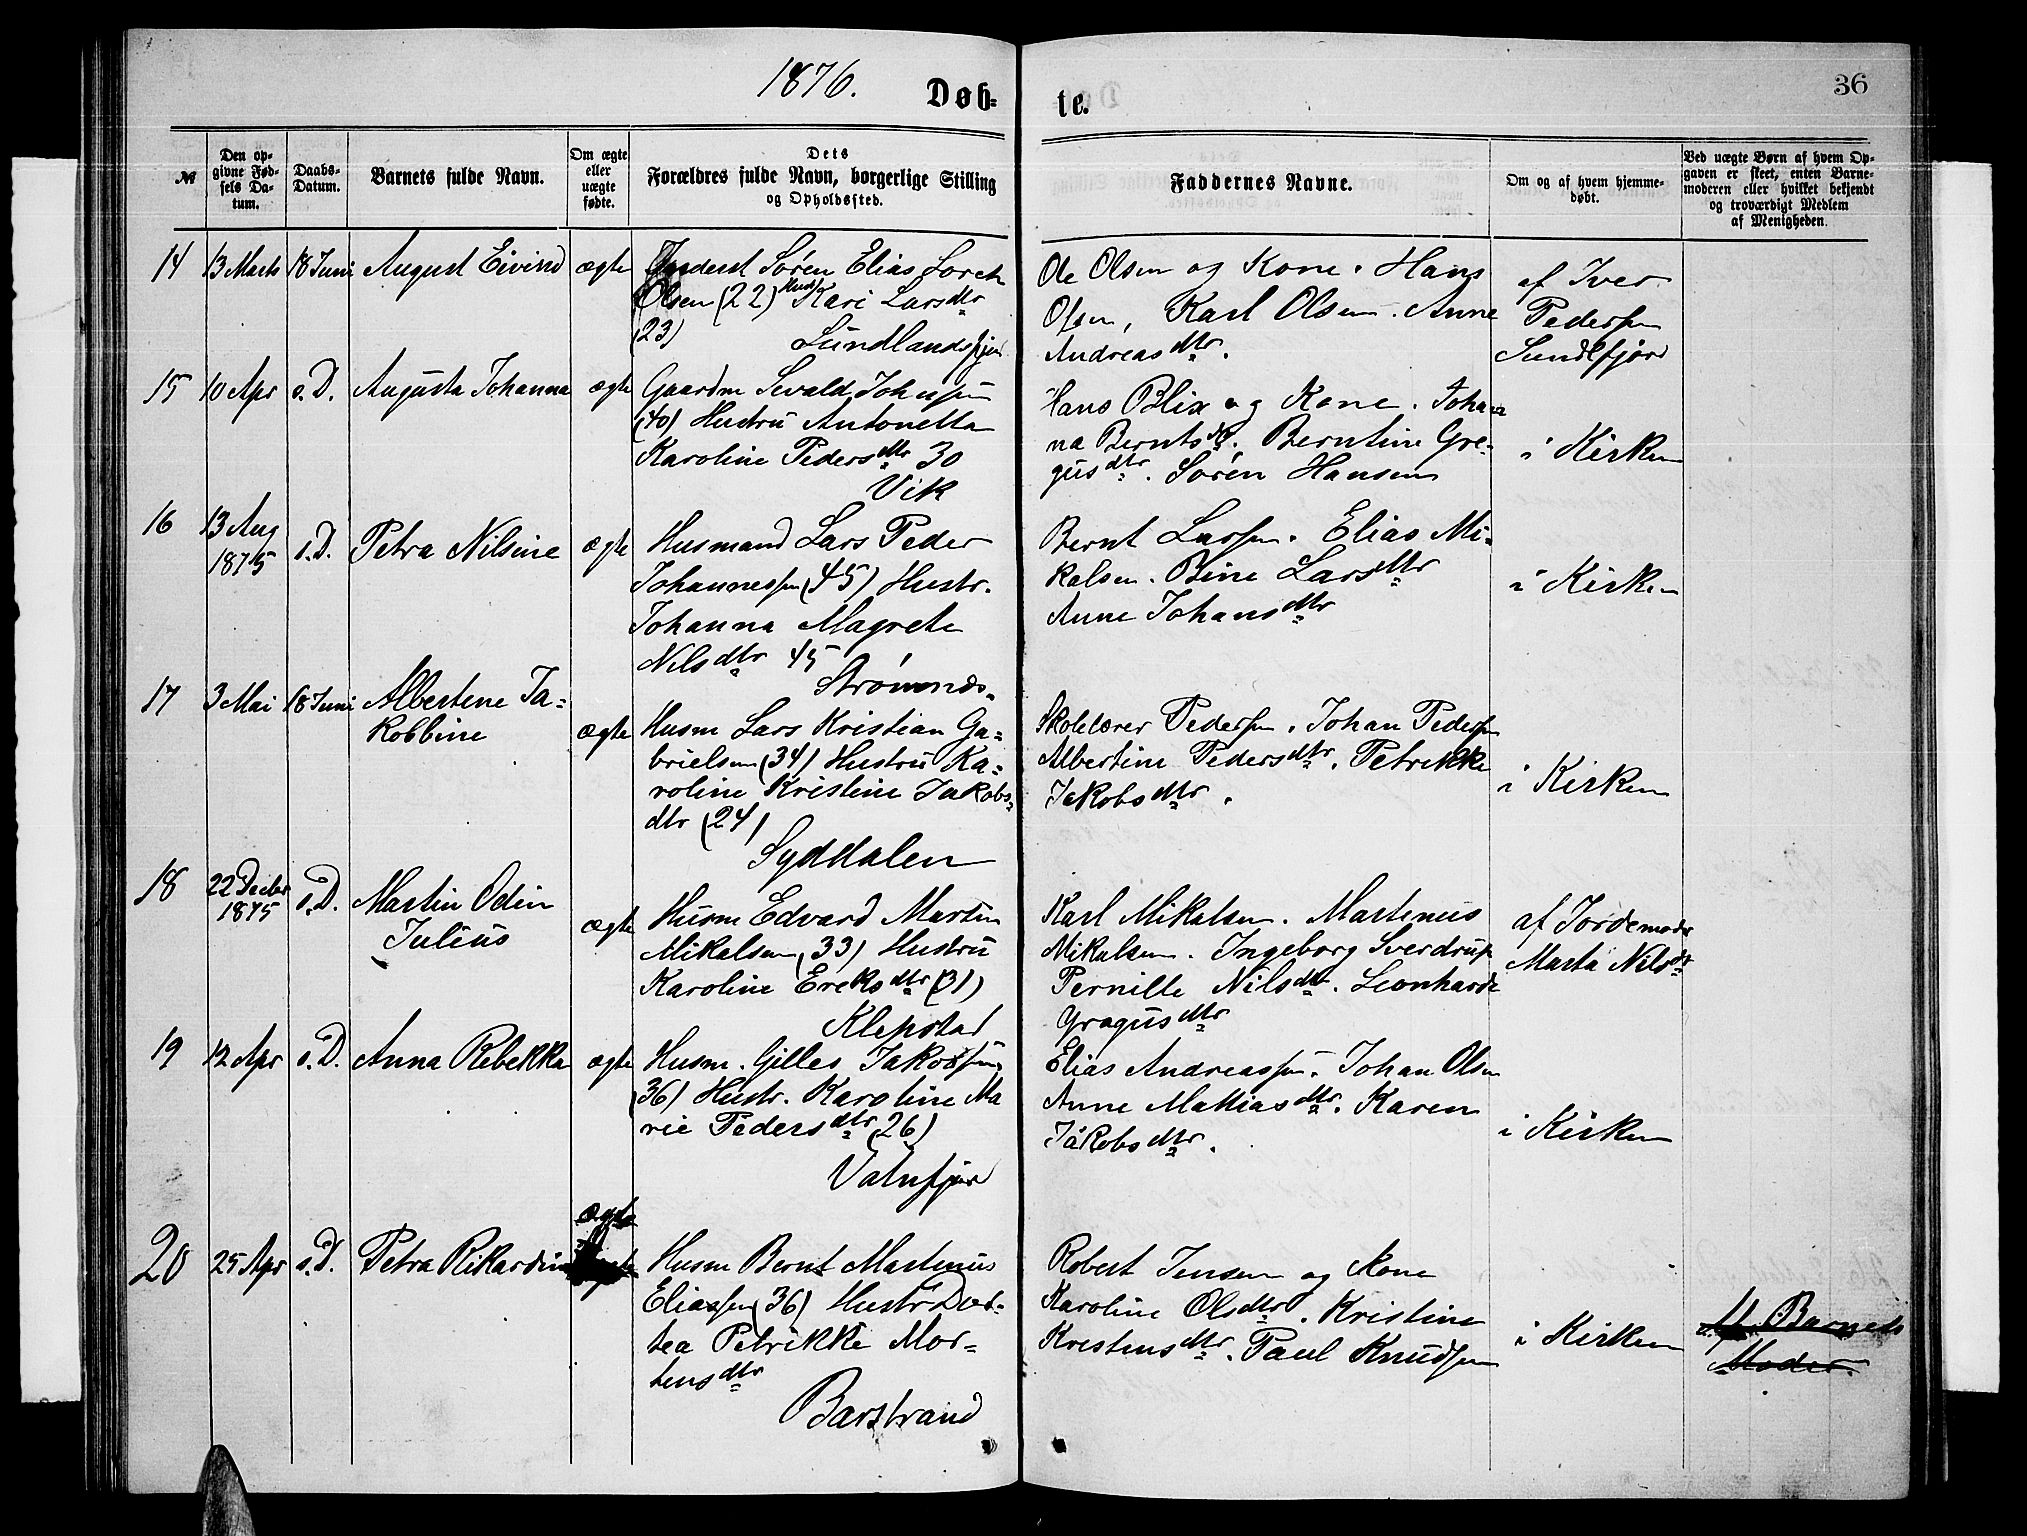 1876.
Døb-
te.
36
№
Den op-
givne Fød-
sels Da-
tum.
Daabs-
Datum.
Barnets fulde Navn.
Om ægte
eller
uægte
fødte.
Dets
Forældres fulde Navn, borgerlige Stilling
og Opholdssted.
Faddernes Navne.
Om og af hvem hjemme-
døbt.
Ved uægte Børn af hvem Op-
gaven er skeet, enten Barne-
moderen eller hvilket bekjendt
og troværdigt Medlem
af Menigheden.
14 13 Marts 18 Juni August Eivind ægte
Inderst Søren Elias Loren
Olsen (22) Hust Kari Larsdtr
(23)
Ole Olsen og Kone. Hans
Olsen, Karl Olsen. Anne
Andreasdtr.
af Iver
Pedersen
Sundlfjord
15 10 Apr s.D. Augusta Johanna ægte
Gaardm Sevald Johnsen
(40) Hustru Antonetta
Karoline Pedersdtr 30
Vik
Hans Blix og Kone. Johan
na Berntsdtr. Berntine Gre-
gusdtr. Sørén Hansen
i Kirken
16 13 Aug
1875 s.D. Petra Nilsine ægte
Husmand Lars Peder
Johannessen (45) Hustr.
Johanna Magrete
Nilsdtr 45
Strømnes.
Bernt Larssen. Elias Mi-
kalsen. Bine Larsdtr
Anne Johansdtr
i Kirken
17 3 Mai 18 Juni Albertene Ja-
kobbine ægte
Husm Lars Kristian Ga-
brielsen (34) Hustru Ka-
roline Kristine Jakobs-
dtr (24)
Syddalen
Skolelærer Pedersen. Johan Pedersen
Albertine Pedersdtr. Petrikke
Jakobsdtr.
i Kirken
18 22 Decbr
1875 s.D. Martin Odin
Julius ægte
Husm Edvard Martin
Mikalsen (33) Hustru
Karoline Ereksdtr (31)
Klepstad
Karl Mikalsen. Martinus
Mikalsen. Ingeborg Sverdrup
Pernille Nilsdtr. Leonharde
Gragusdtr
af Jordemoder
Marta Nilsdtr
19 12 Apr s.D. Anna Rebekka ægte
Husm. Gilles Jakobsen
(36) Hustr. Karoline Ma
rie Pedersdtr (26)
Vatnfjord
Elias Andreassen. Johan Olsen
Anne Mathiasdtr. Karen
Jakobsdtr.
i Kirken
20 25 Apr s.D. Petra Rikardine ægte
Husm Bernt Martinus
Eliassen (36) Hustr Dor-
tea Petrikke Mor-
tensdtr
Barstrand
Robert Jensen og Kone
Karoline Olsdtr. Kristine
Kristensdtr. Paul Knudsen
i Kirken
Af Barnets
Moder.